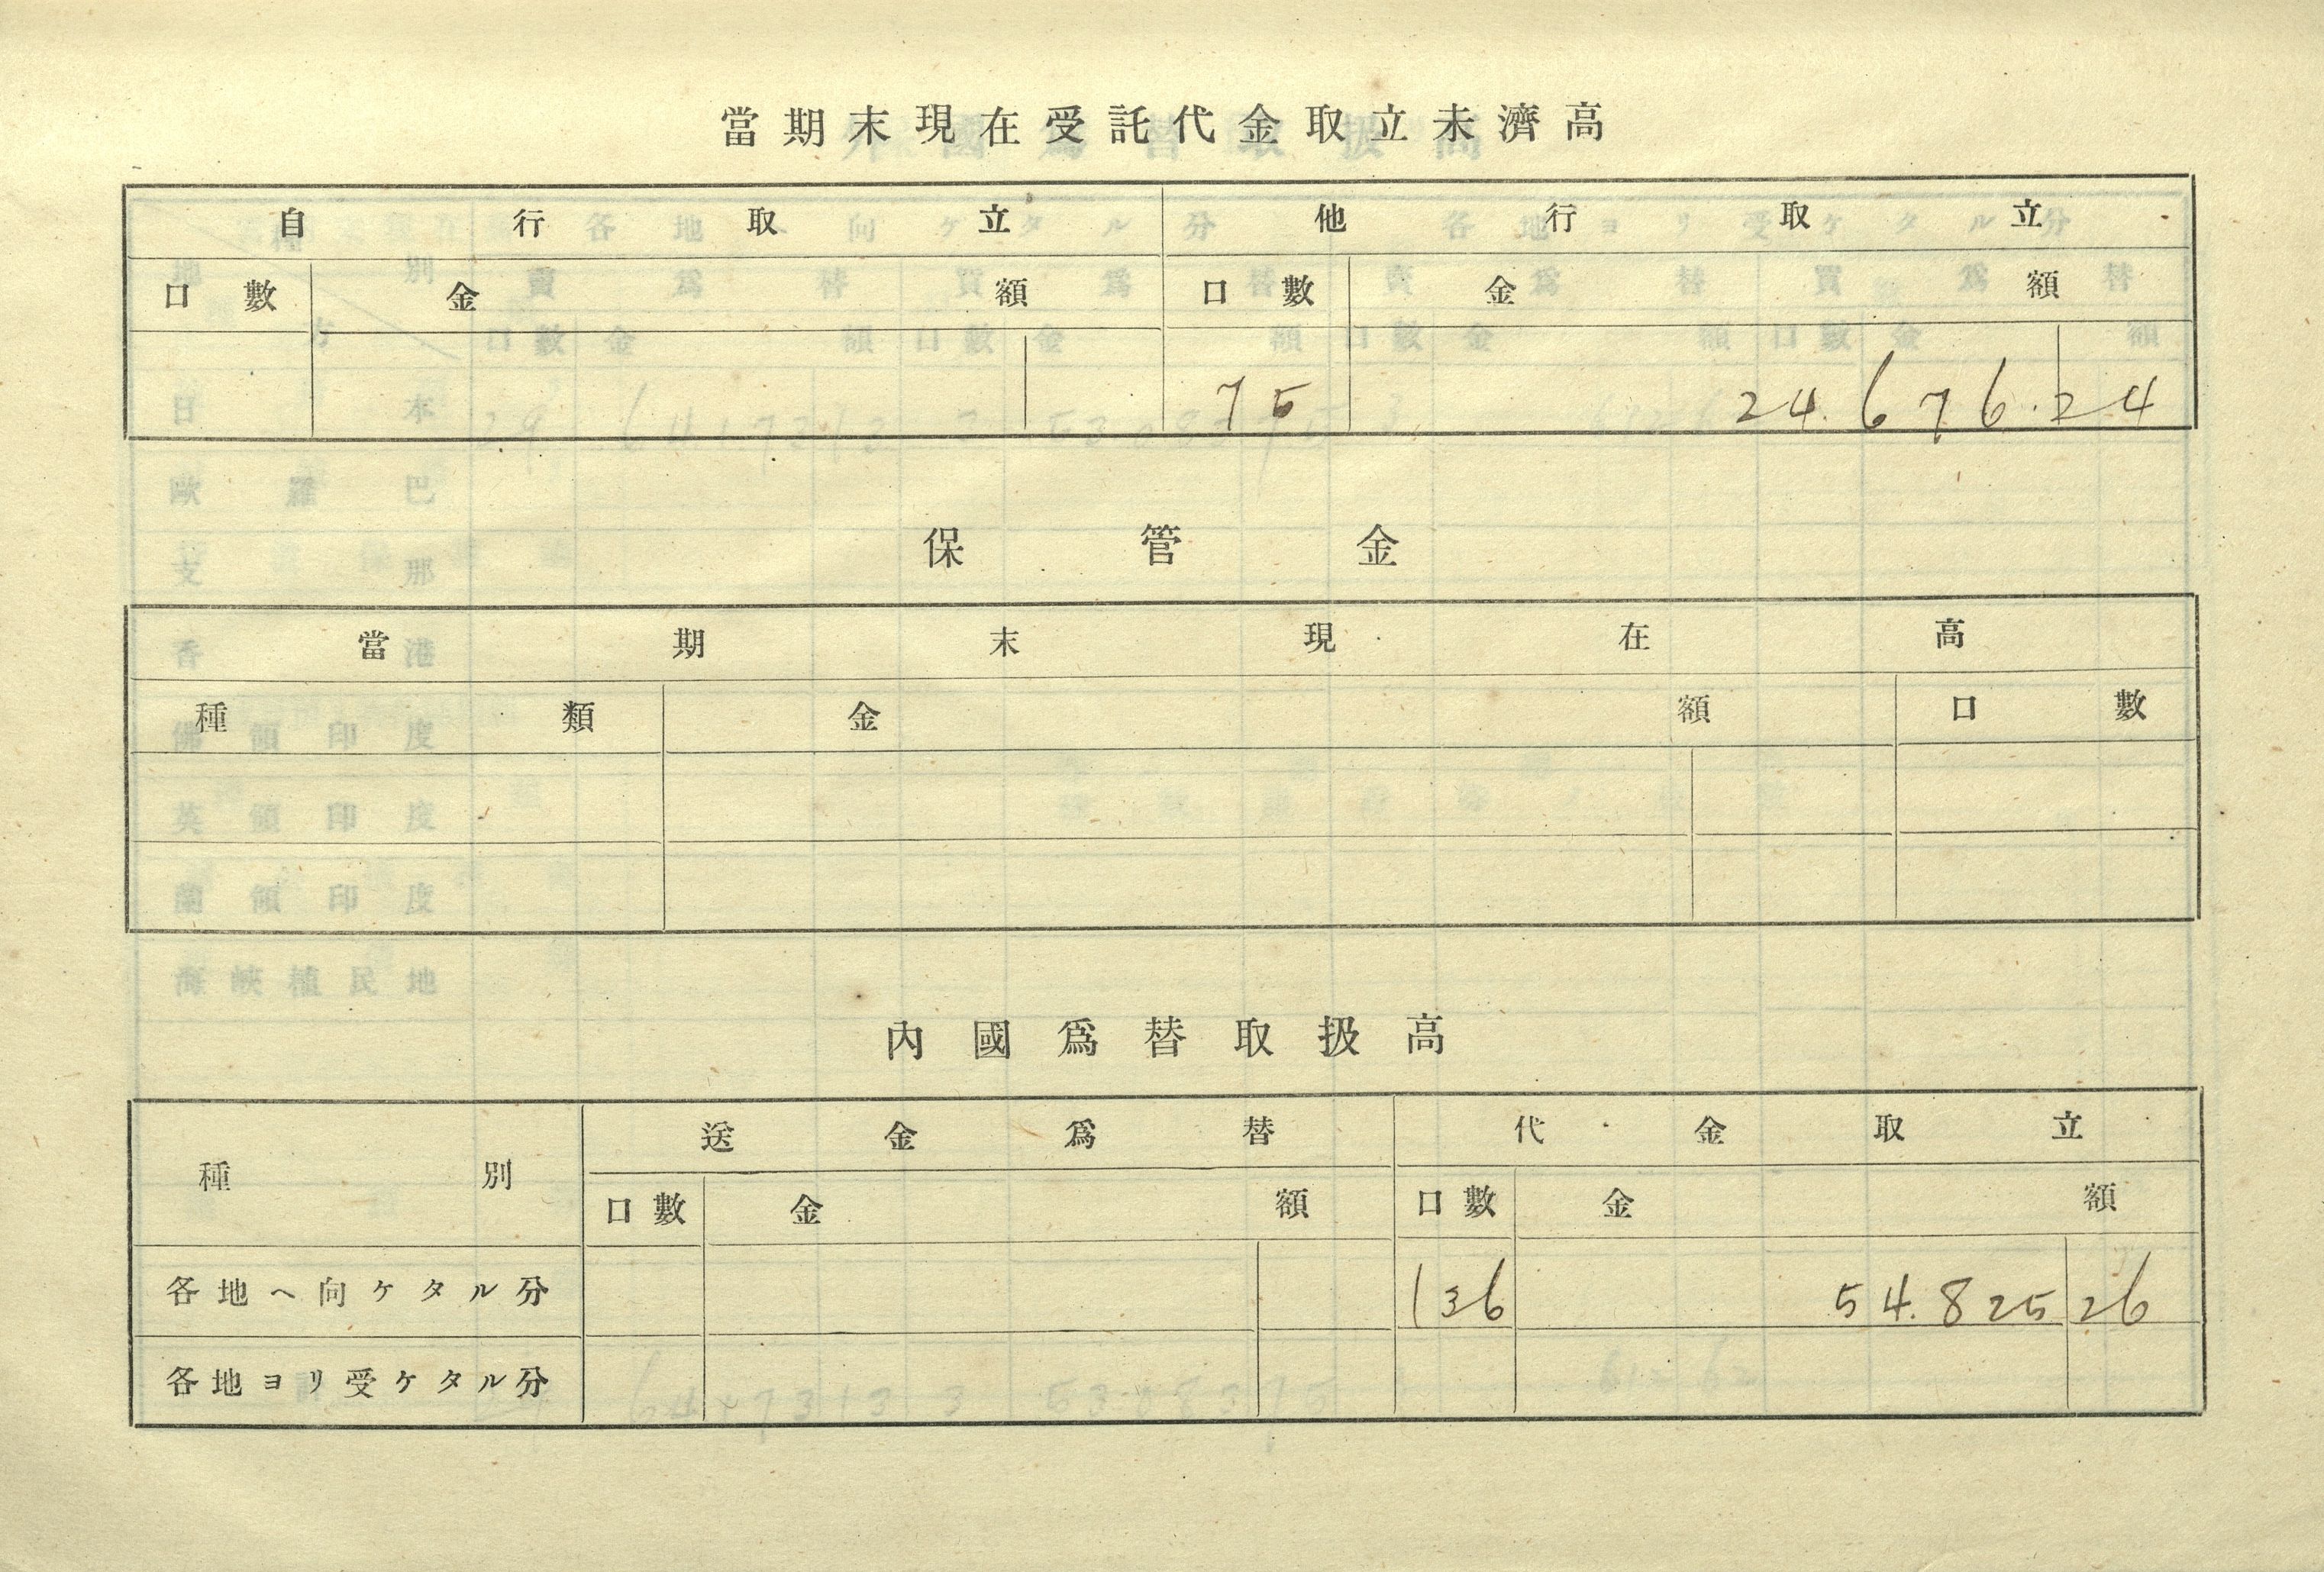 當期末現在受託代金取立未濟高
自行取立 他行取立
口數 金額 口數 金額
75 24.676.24
保管金
當期末現在高
種類 金額 口數
內國爲替取扱高
種別 送金爲替 代金取立
口數 金額 口數 金額
各地へ向ケタル分 136 54.825 26
各地ヨリ受ケタル分